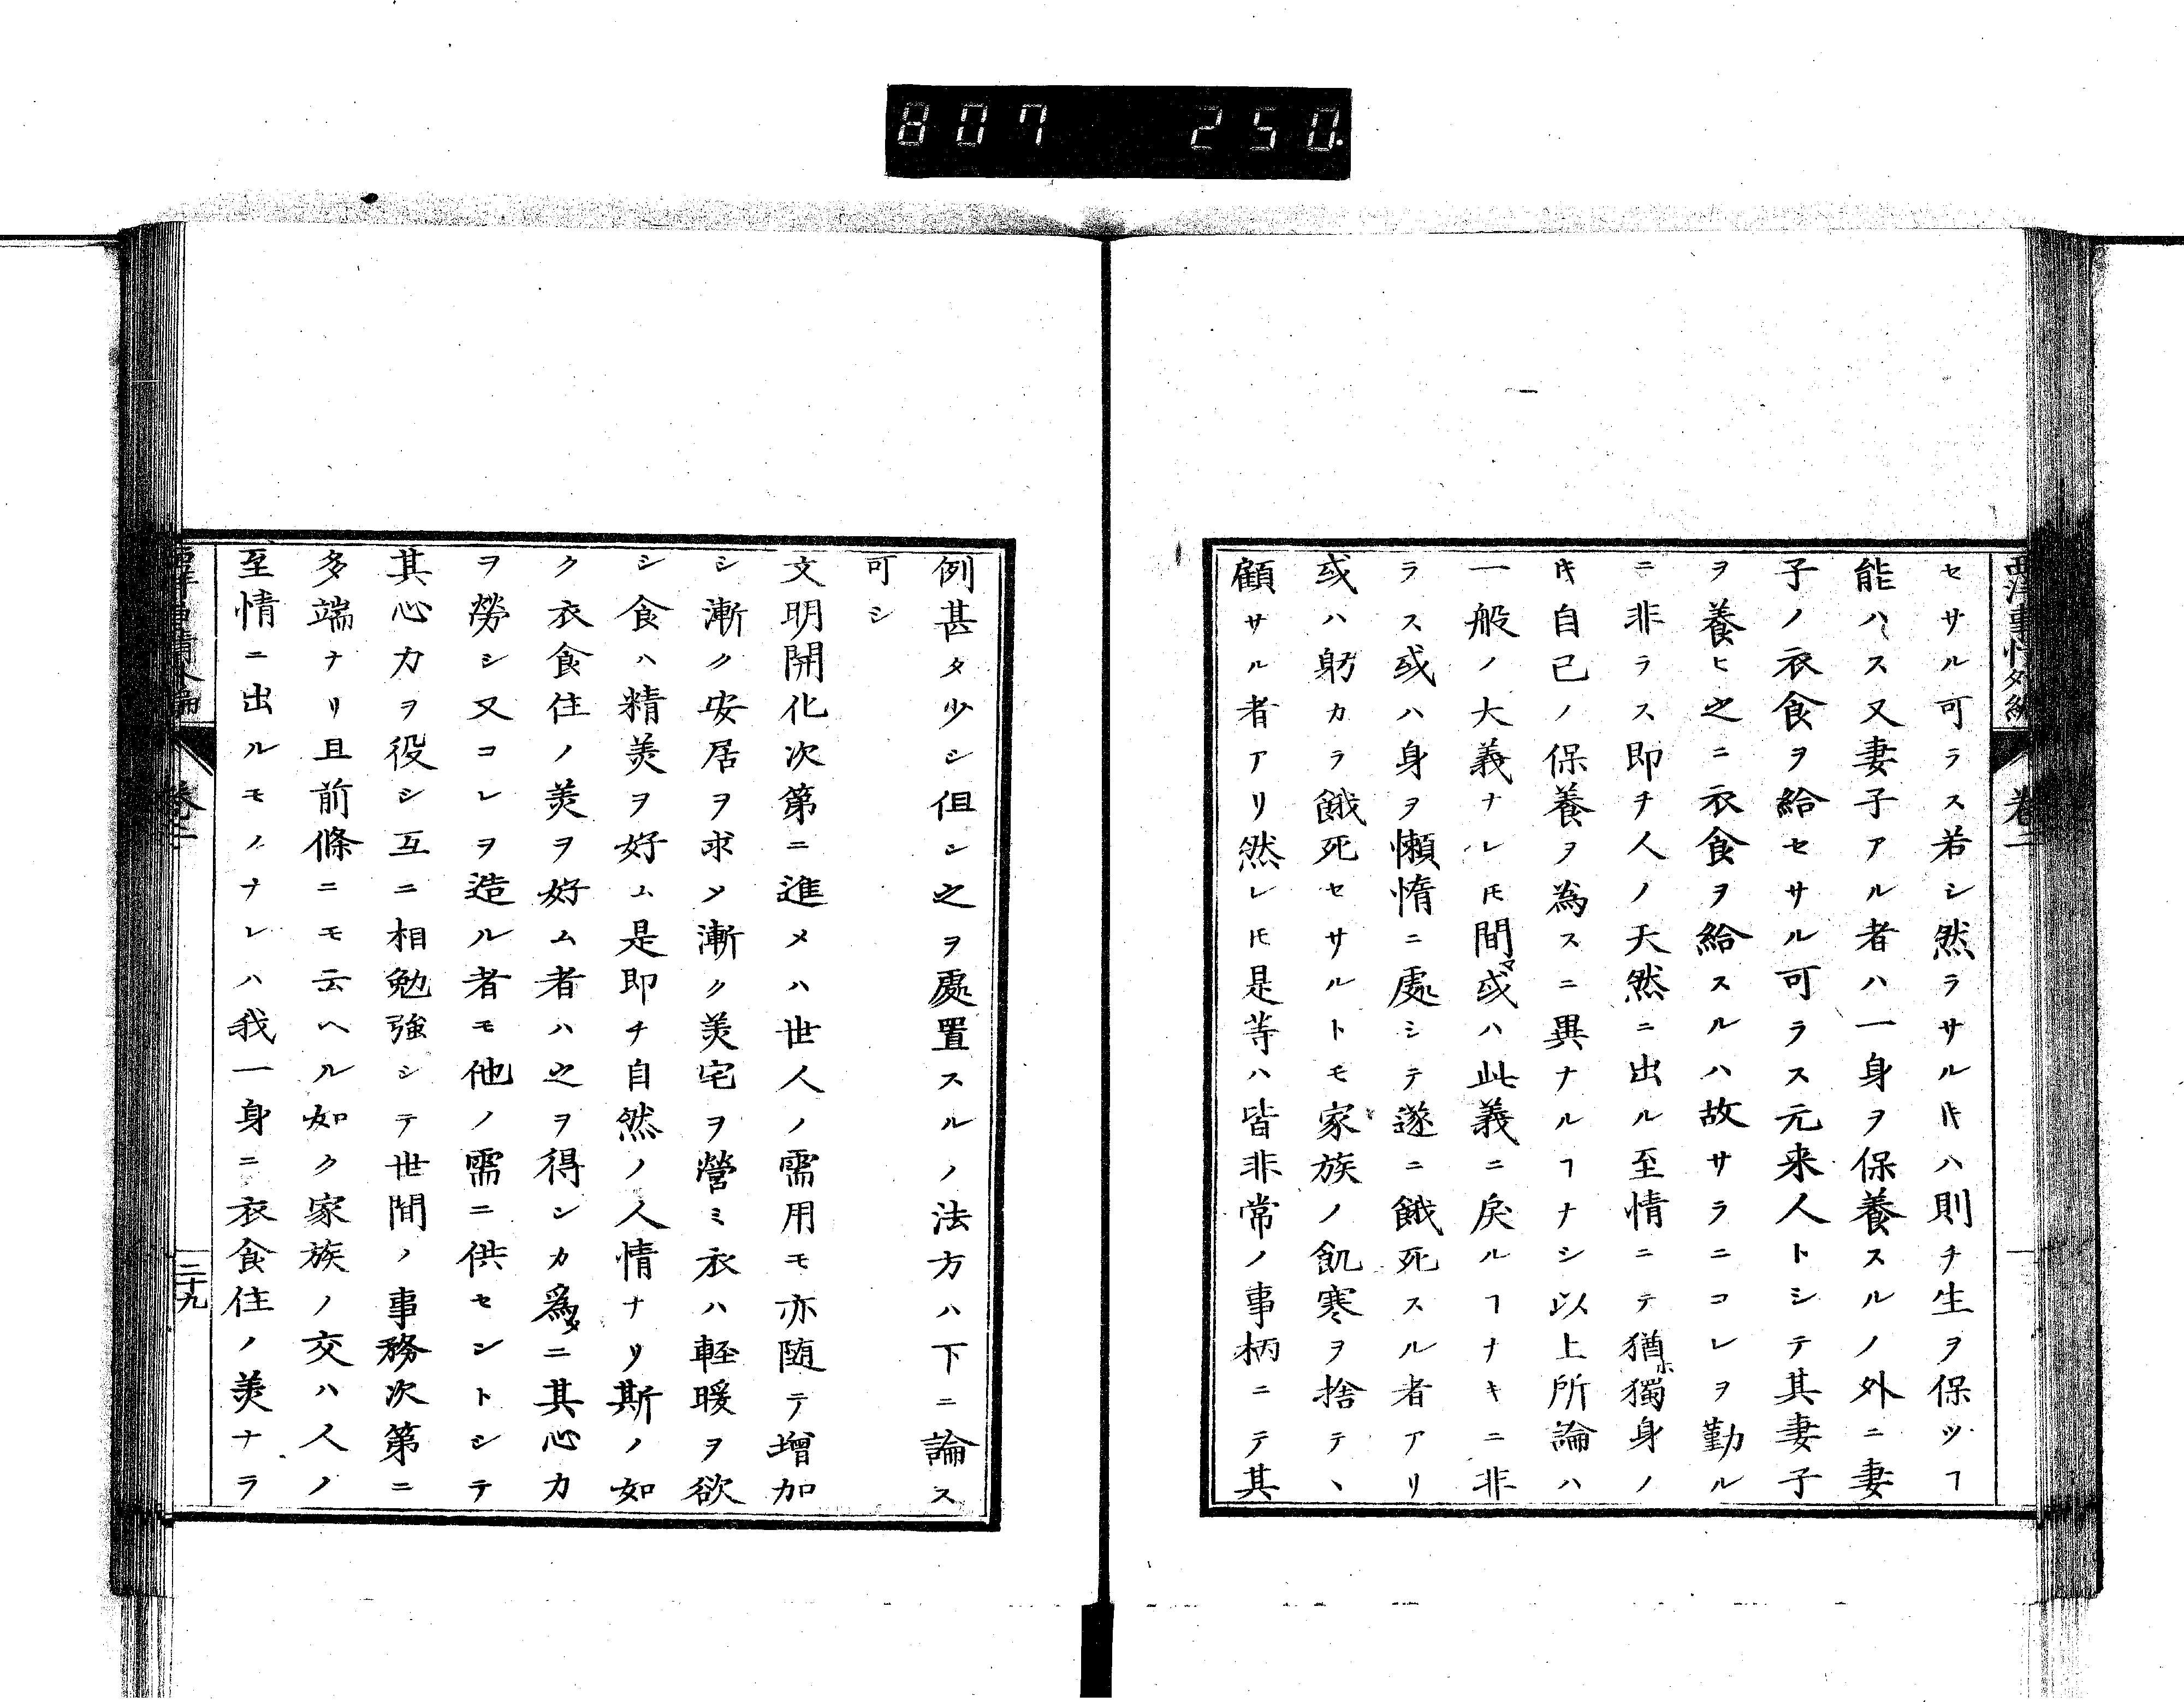 807 250.
西洋事情外編 卷二
セサル可ラス若シ然ラサルﾄｷハ則チ生ヲ保ツヿ
能ハス又妻子アル者ハ一身ヲ保養スルノ外ニ妻
子ノ衣食ヲ給セサル可ラス元来人トシテ其妻子
ヲ養ヒ之ニ衣食ヲ給スルハ故サラニコレヲ勤ル
ニ非ラス即チ人ノ天然ニ出ル至情ニテ猶ホ獨身ノ
ﾄｷ自己ノ保養ヲ為スニ異ナルヿナシ以上所論ハ
一般ノ大義ナレﾄﾓ間マ或ハ此義ニ戻ルヿナキニ非
ラス或ハ身ヲ懶惰ニ處シテ遂ニ餓死スル者アリ
或ハ躬カラ餓死セサルトモ家族ノ飢寒ヲ捨テヽ
顧サル者アリ然レﾄﾓ是等ハ皆非常ノ事柄ニテ其
例甚タ少シ但シ之ヲ處置スルノ法方ハ下ニ論ス
可シ
文明開化次第ニ進メハ世人ノ需用モ亦随テ增加
シ漸ク安居ヲ求メ漸ク美宅ヲ營ミ衣ハ輕暖ヲ欲
シ食ハ精美ヲ好ム是即チ自然ノ人情ナリ斯ノ如
ク衣食住ノ美ヲ好ム者ハ之ヲ得ンカ爲メニ其心力
ヲ勞シ又コレヲ造ル者モ他ノ需ニ供セントシテ
其心力ヲ役シ互ニ相勉強シテ世間ノ事務次第ニ
多端ナリ且前條ニモ云ヘル如ク家族ノ交ハ人ノ
至情ニ出ルモノナレハ我一身ニ衣食住ノ美ナラ
西洋事情外編 卷二 二十九